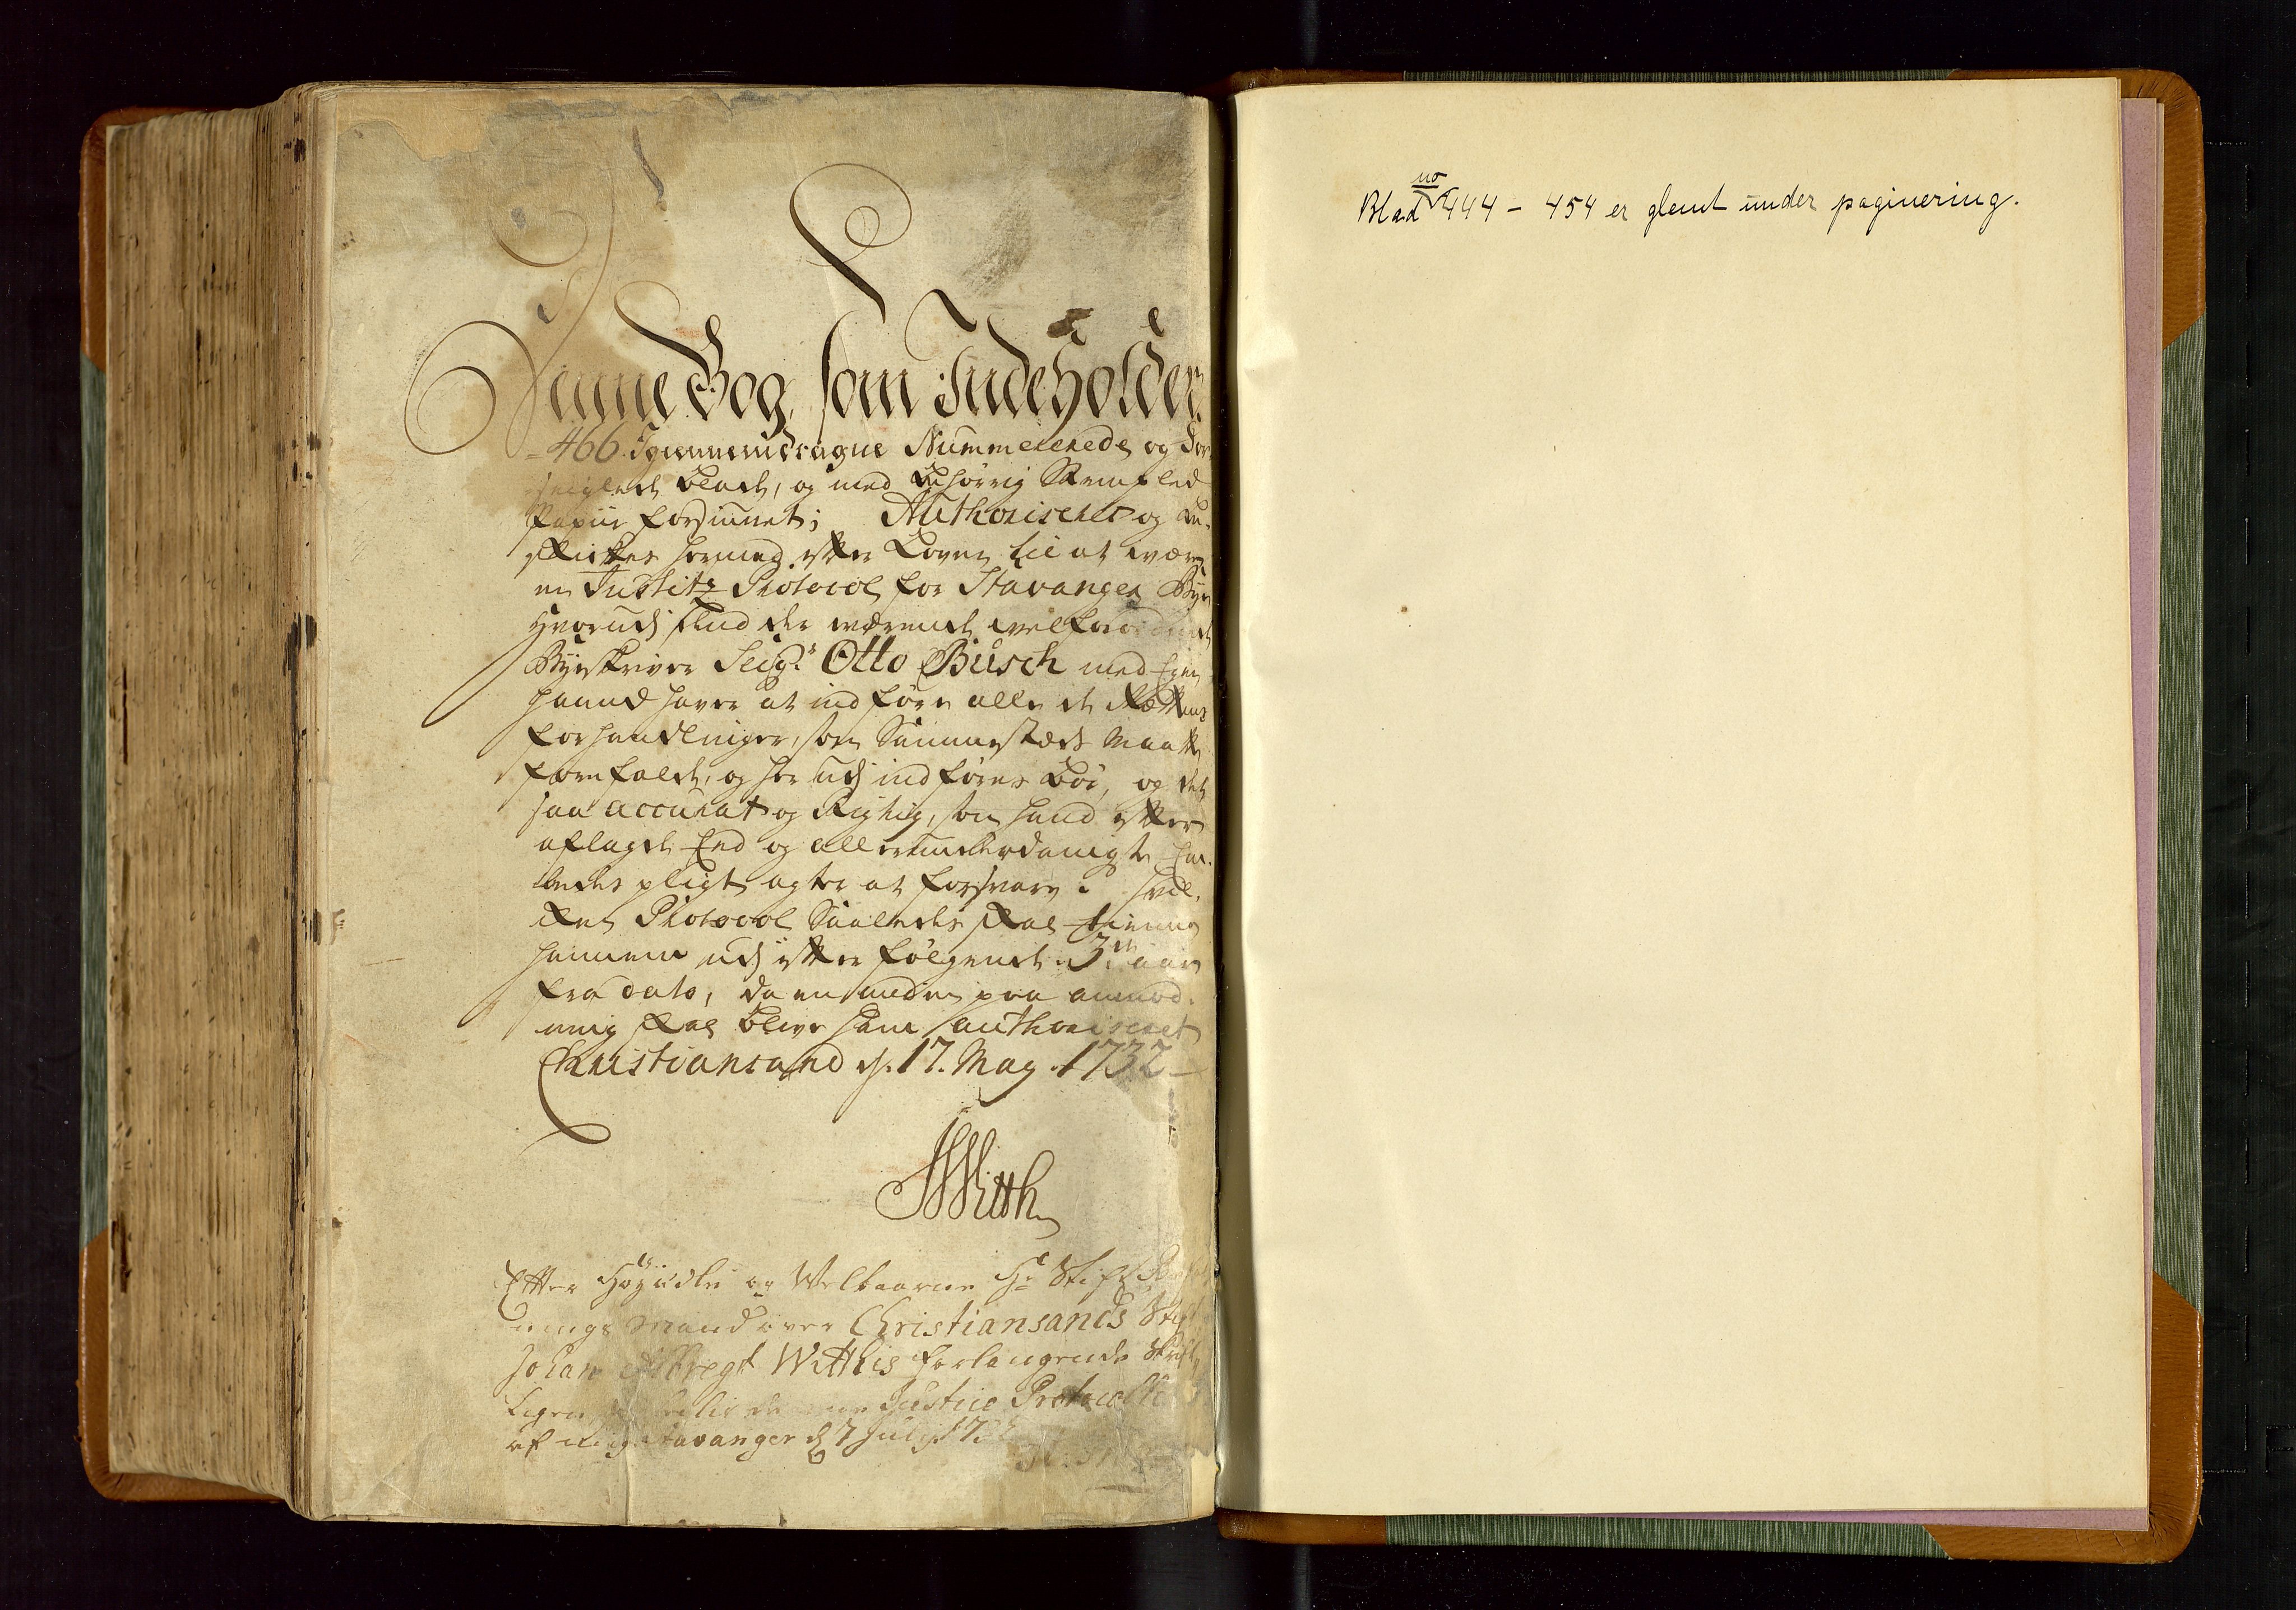 Denne Bog, som Indeholder
466. Igiennemdragne Nummererede og For-
seiglede Blade, og med behørrig Stempled
Papiir forsiunet; Authoriseres og be-
skikkes hermed efter Loven til at være
en Justitz Protocol for Stavanger Bye
Hvorudj stæd der værende velforordnede
Byeskriver Seigr Otto Büsch med Egen
Haand haver at indføre alle de Rættens
forhandlinger, som Sammestæds Maatte
forefalde, og her udj indføres bør, og det
saa accurat og Rigtig, som hand efter
aflagde Eed og allerunderdanigste Em-
bedes pligt agter at forsvare. Hvil-
ken Protocol Saaledes skal tienne
hannem udj efter følgende 3de aar
fra dato, da en anden paa anmod-
ning skal blive ham authoriseret
Christiansand d. 17. May 1732
JAWitth
Efter Høyædle og Welbaarne Hr Stift
nings Mand over Christiansands Stift
Johan Albregt Witthis forlangende
Justice Protocoll
af mig Stavanger d 7 July 17
Blad no 444 - 454 er glemt under paginering.